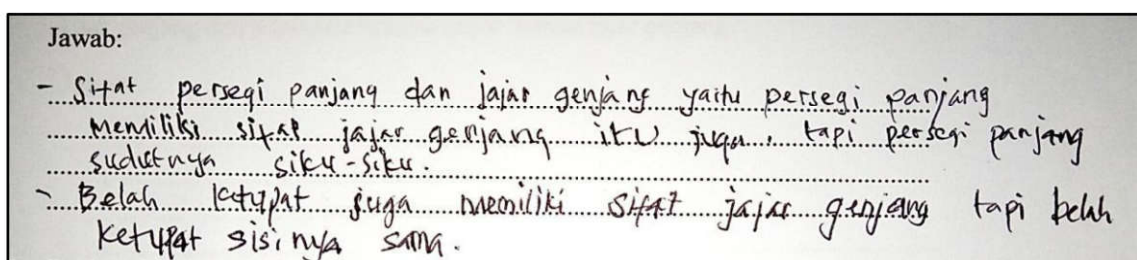 Jawab:
- Sifat persegi panjang dan jajar genjang yaitu persegi panjang
memiliki sifat jajar genjang itu juga, tapi persegi panjang
sudutnya siku-siku.
- Belah ketupat juga memiliki sifat jajar genjang tapi belah
ketupat sisinya sama.